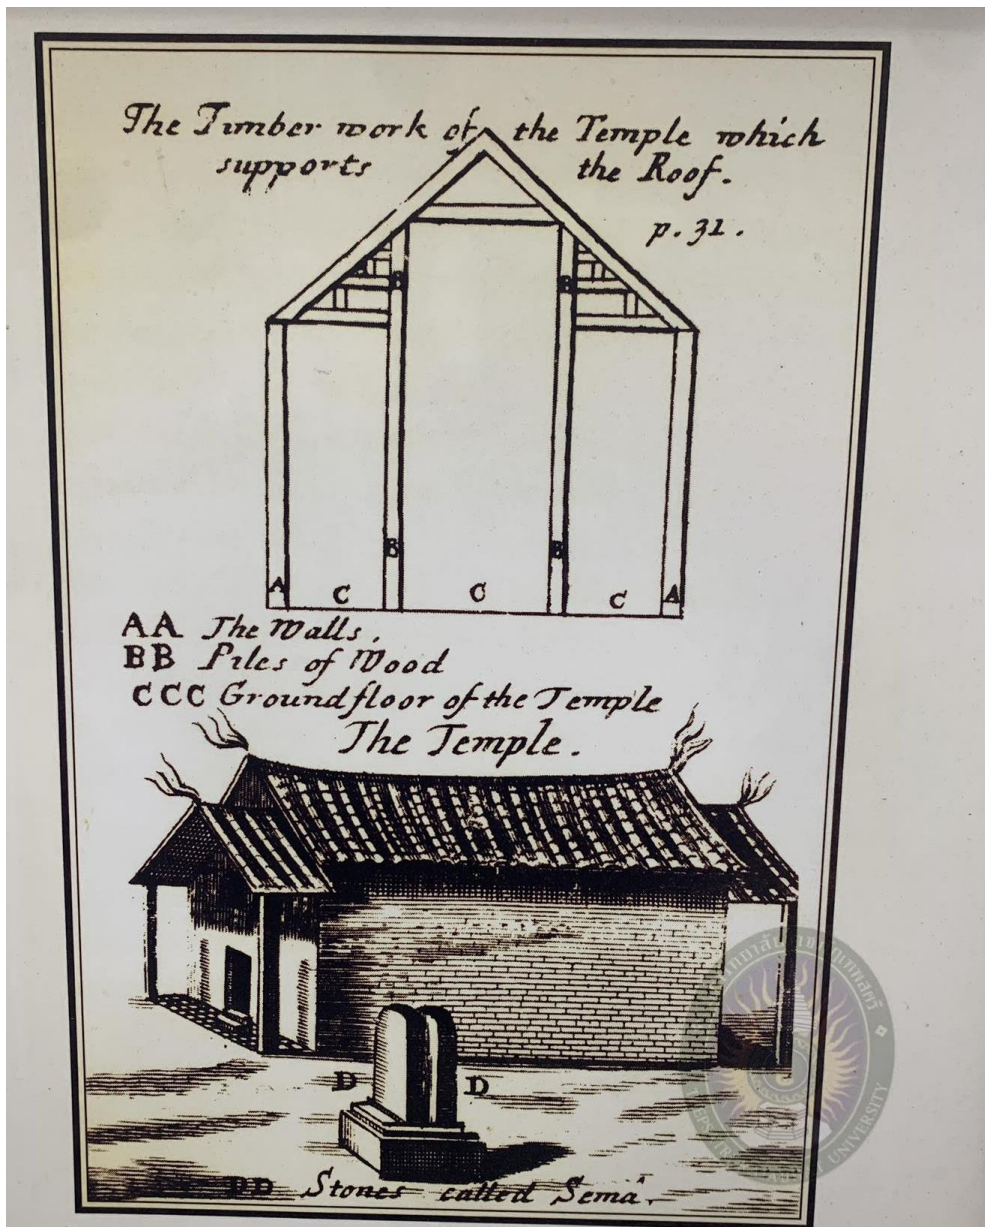 The Timber work of the Temple which
supports the Roof.
p. 31.
B B
B B
A C C C A
AA The Walls.
BB Piles of Wood
CCC Groundfloor of the Temple
The Temple.
D D
DD Stones called Sema.
UNIVERSITY